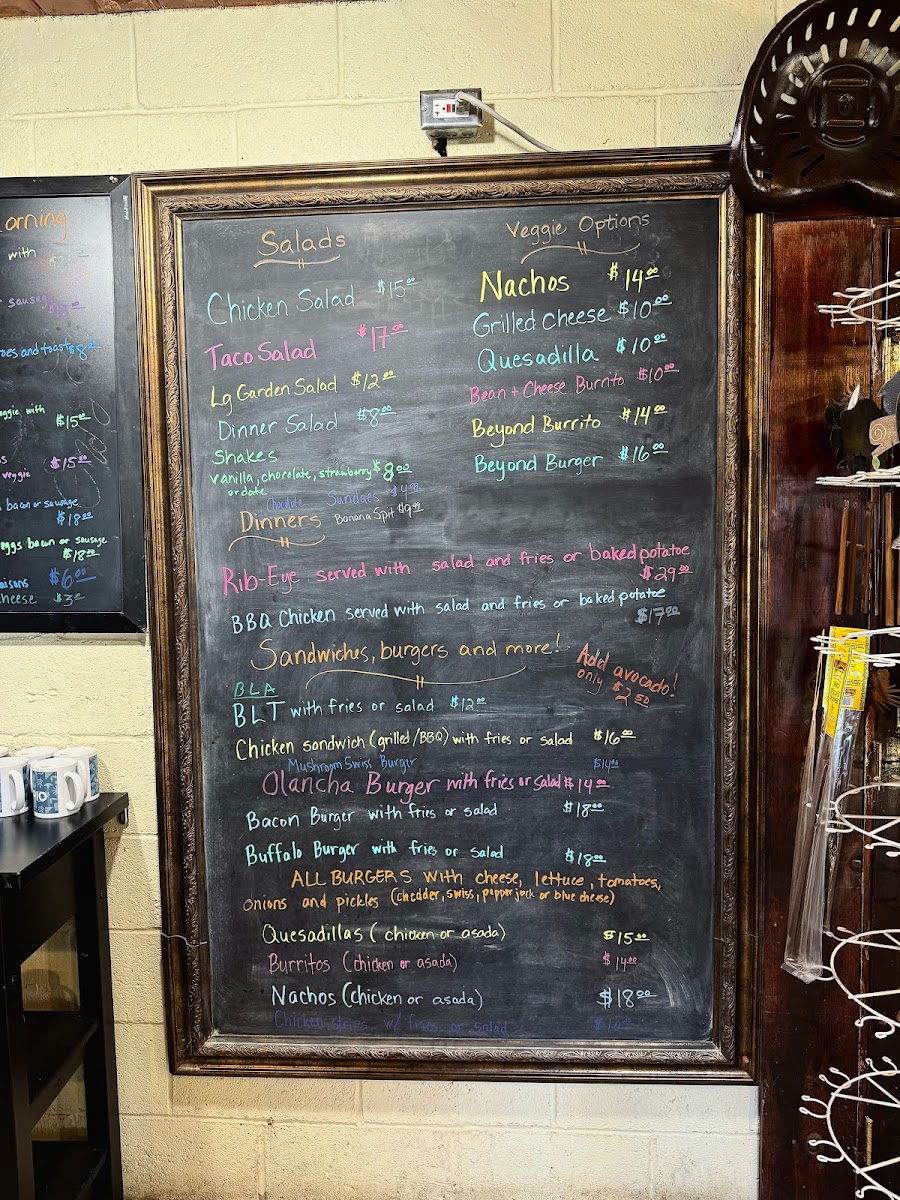 orning
with
sausage
oes and toast $8.00
eggie with
$15.00
veggie $15.00
bacon or sausage
$18.00
eggs bacon or sausage
$18.00
aisons $6.00
cheese $3.00
Salads
Chicken Salad $15.00
Taco Salad $17.00
Lg Garden Salad $12.00
Dinner Salad $8.00
Shakes
vanilla, chocolate, strawberry $8.00
or date
Chocolate Sundaes $4.00
Banana Spit $9.00
Veggie Options
Nachos $14.00
Grilled Cheese $10.00
Quesadilla $10.00
Bean + Cheese Burrito $10.00
Beyond Burrito $14.00
Beyond Burger $16.00
Dinners
Rib-Eye served with salad and fries or baked potatoe
$29.00
BBQ Chicken served with salad and fries or baked potatoe
$17.00
Sandwiches, burgers and more!
Add avocado!
only $2.50
BLA
BLT with fries or salad $12.00
Chicken sandwich (grilled/BBQ) with fries or salad $16.00
Mushroom Swiss Burger $14.00
Olancha Burger with fries or salad $14.00
Bacon Burger with fries or salad $18.00
Buffalo Burger with fries or salad $18.00
ALL BURGERS with cheese, lettuce, tomatoes,
onions and pickles (chedder, swiss, pepper jack or blue cheese)
Quesadillas (chicken or asada) $15.00
Burritos (chicken or asada) $14.00
Nachos (chicken or asada) $18.00
Chicken strips w/ fries or salad